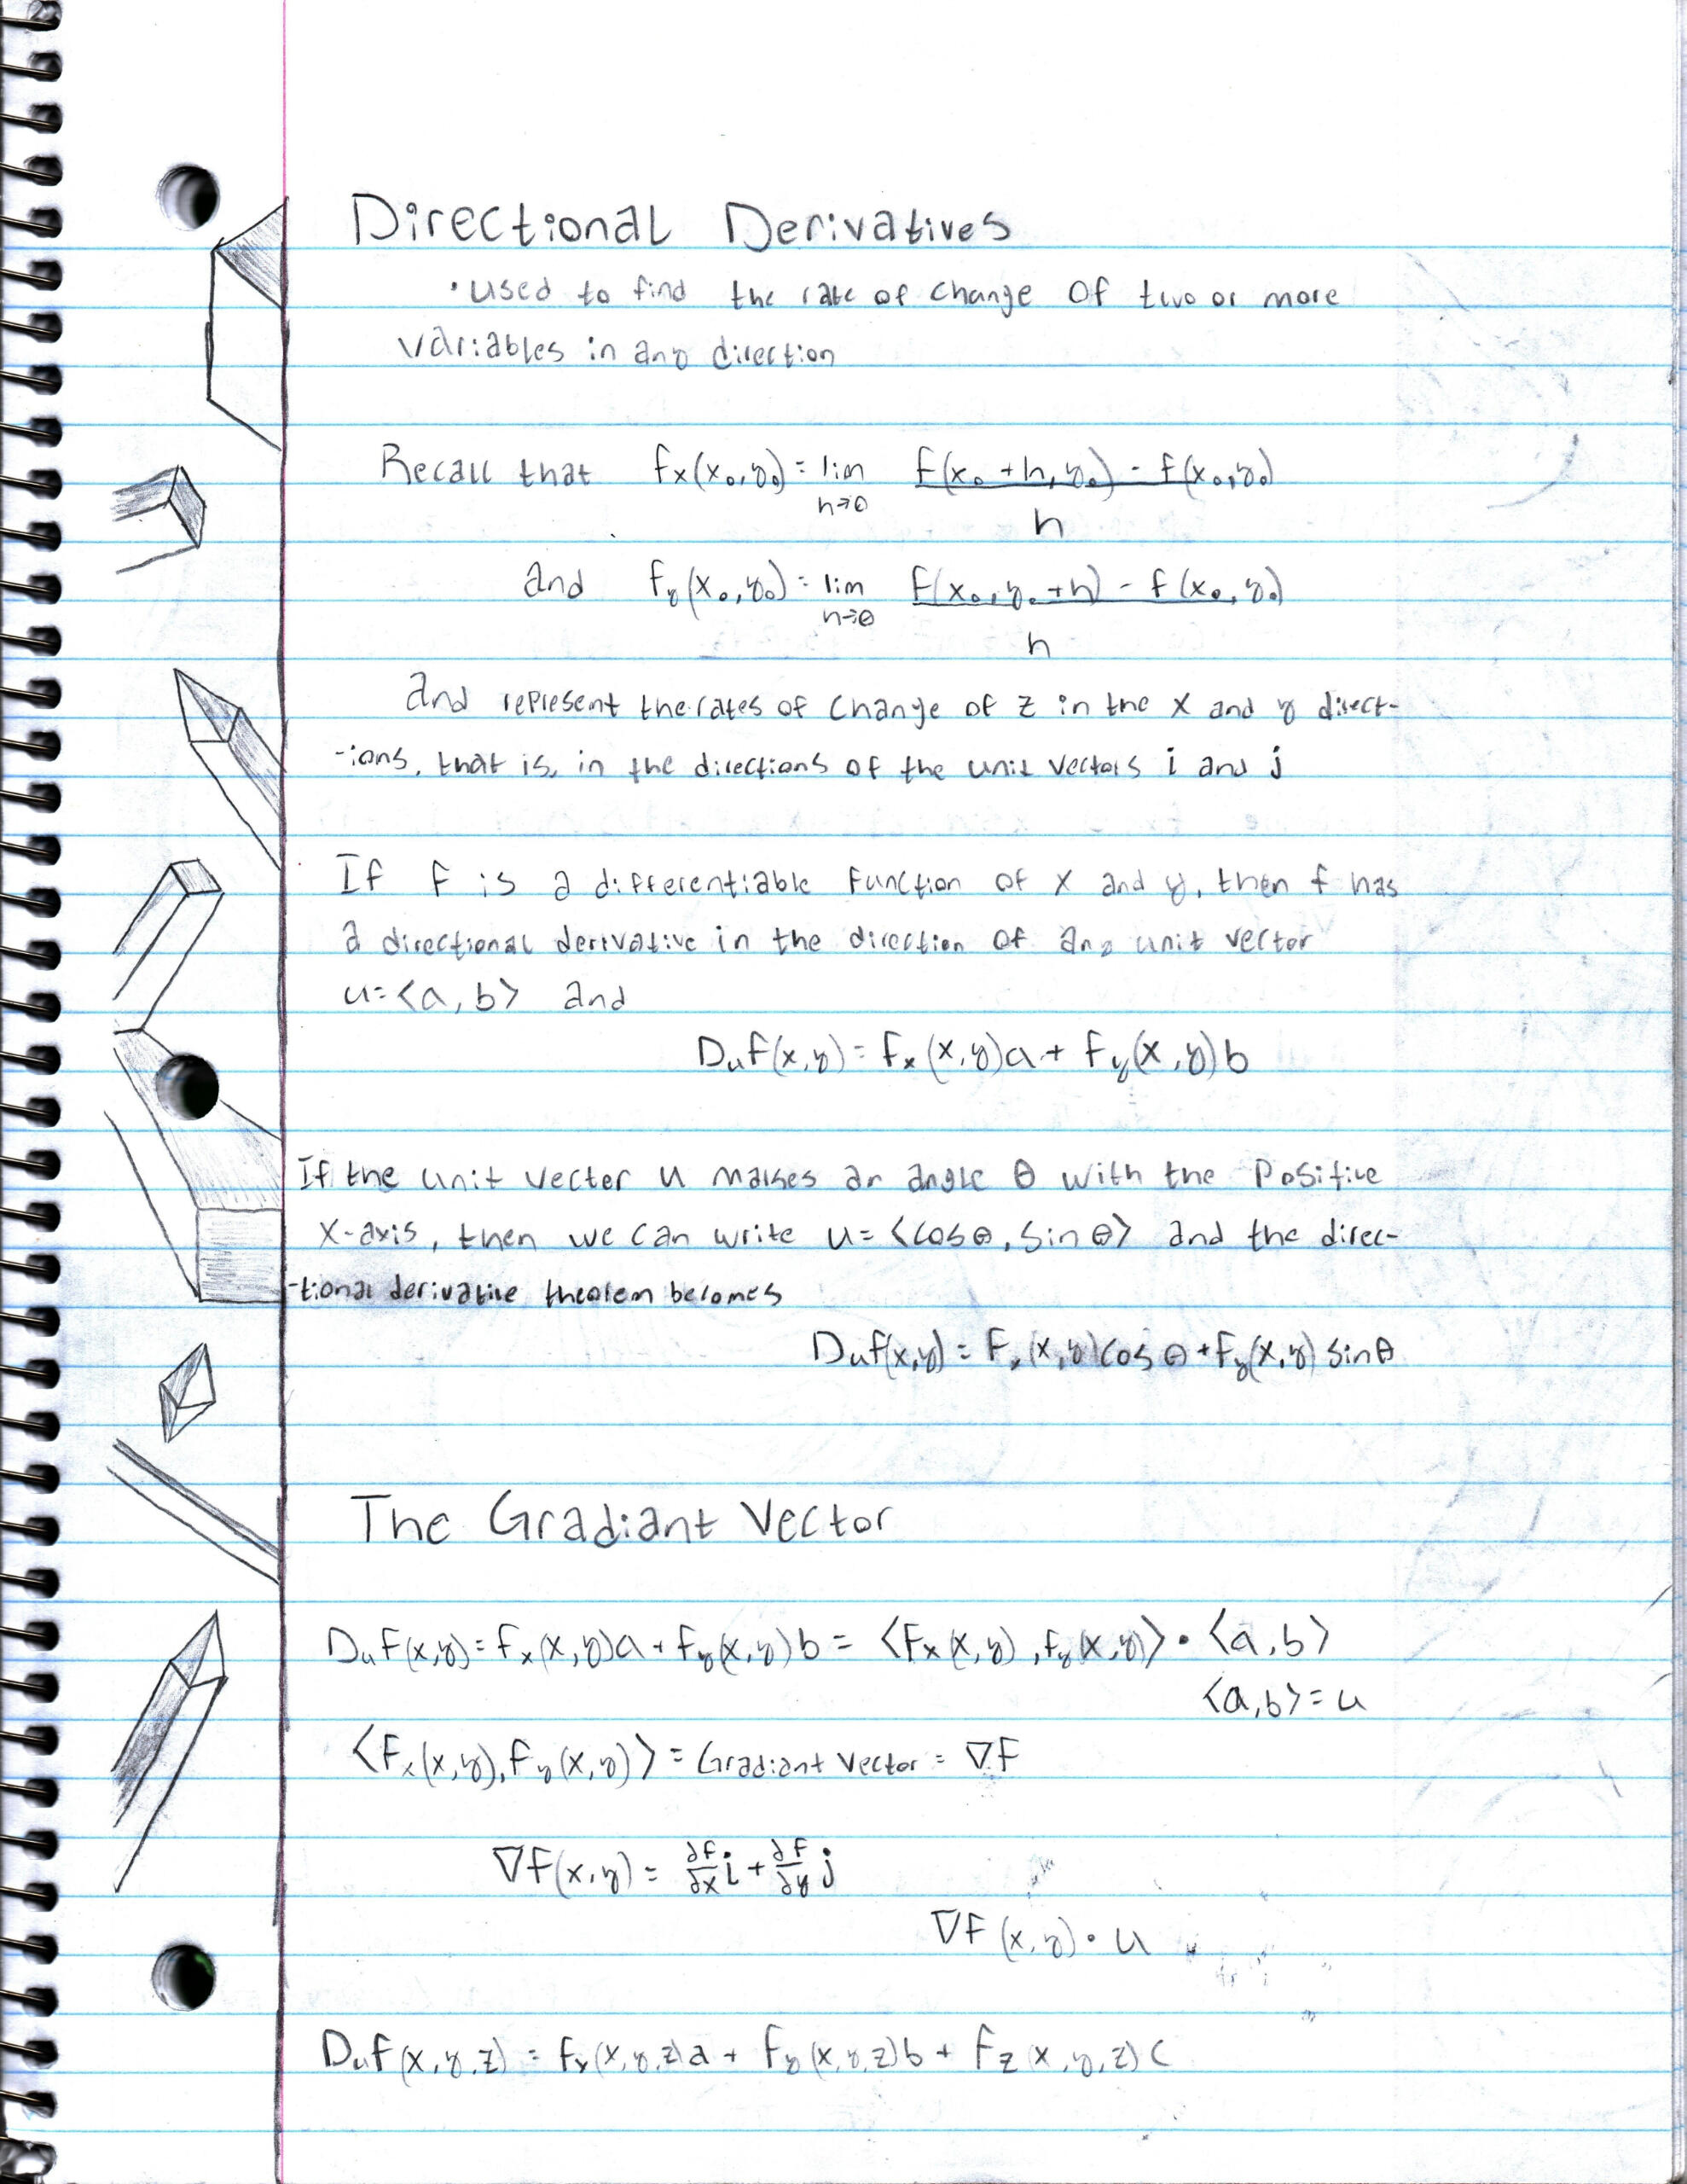 Directional Derivatives
• used to find the rate of change of two or more
variables in any direction
Recall that fx(x₀,y₀) = lim f(x₀+h, y₀) - f(x₀,y₀)
h→0 h
and fy(x₀,y₀) = lim f(x₀,y₀+h) - f(x₀,y₀)
h→0 h
and represent the rates of change of z in the x and y direct-
-ions, that is, in the directions of the unit vectors i and j
If f is a differentiable function of x and y, then f has
a directional derivative in the direction of any unit vector
u=<a,b> and
Duf(x,y) = fx(x,y)a + fy(x,y)b
If the unit vector u makes an angle θ with the positive
x-axis, then we can write u=<cosθ, sinθ> and the direc-
-tional derivative theorem becomes
Duf(x,y) = fx(x,y)cosθ + fy(x,y) sinθ
The Gradiant Vector
Duf(x,y) = fx(x,y)a + fy(x,y)b = <fx(x,y), fy(x,y)> • <a,b>
<a,b> = u
<fx(x,y), fy(x,y)> = Gradiant Vector = ∇f
∇f(x,y) = ∂f/∂x i + ∂f/∂y j
∇f(x,y) • u
Duf(x,y,z) = fx(x,y,z)a + fy(x,y,z)b + fz(x,y,z)c